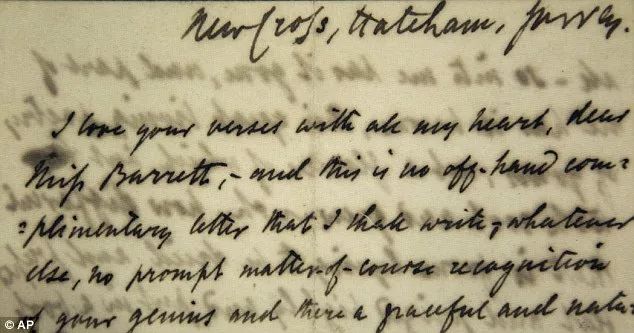 New Cross, Hatcham, Surrey.
I love your verses with all my heart, dear
Miss Barrett, - and this is no off-hand com=
=plimentary letter that I shall write, - whatever
else, no prompt matter-of-course recognition
of your genius and there a graceful and natu-
© AP